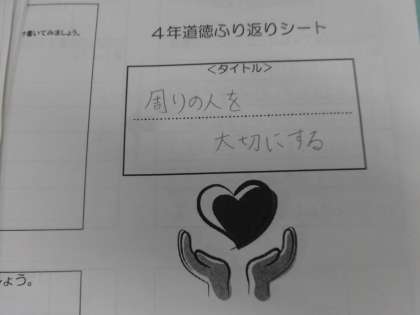 書いてみましょう。
4年道徳ふり返りシート
<タイトル>
周りの人を
大切にする
ょう。